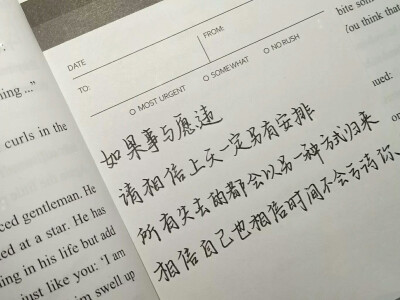 ning ..."
curls in the
ced gentleman. He
ed at a star. He has
ning in his life but add
just like you: 'I am
m swell up
DATE
FROM:
TO:
O MOST URGENT
O SOMEWHAT
O NO RUSH
如果事与愿违
请相信上天一定另有安排
所有失去的都会以另一种方式归来
相信自己也相信时间不会亏待你、
bite som
You think that
nued:
on